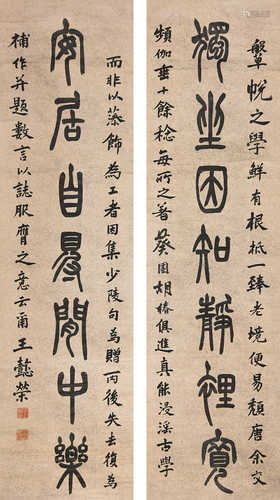 鞶帨之學鮮有根柢一臻老境便易頹唐余交
獨坐因知靜裡寬
頻伽垂十餘稔每所之著葵園胡椿俱進真能浸淫古學
而非以藻飾為工者因集少陵句為贈丙後失去復為
安居自㝵閒中樂
補作并題數言以誌服膺之意云爾 王懿榮